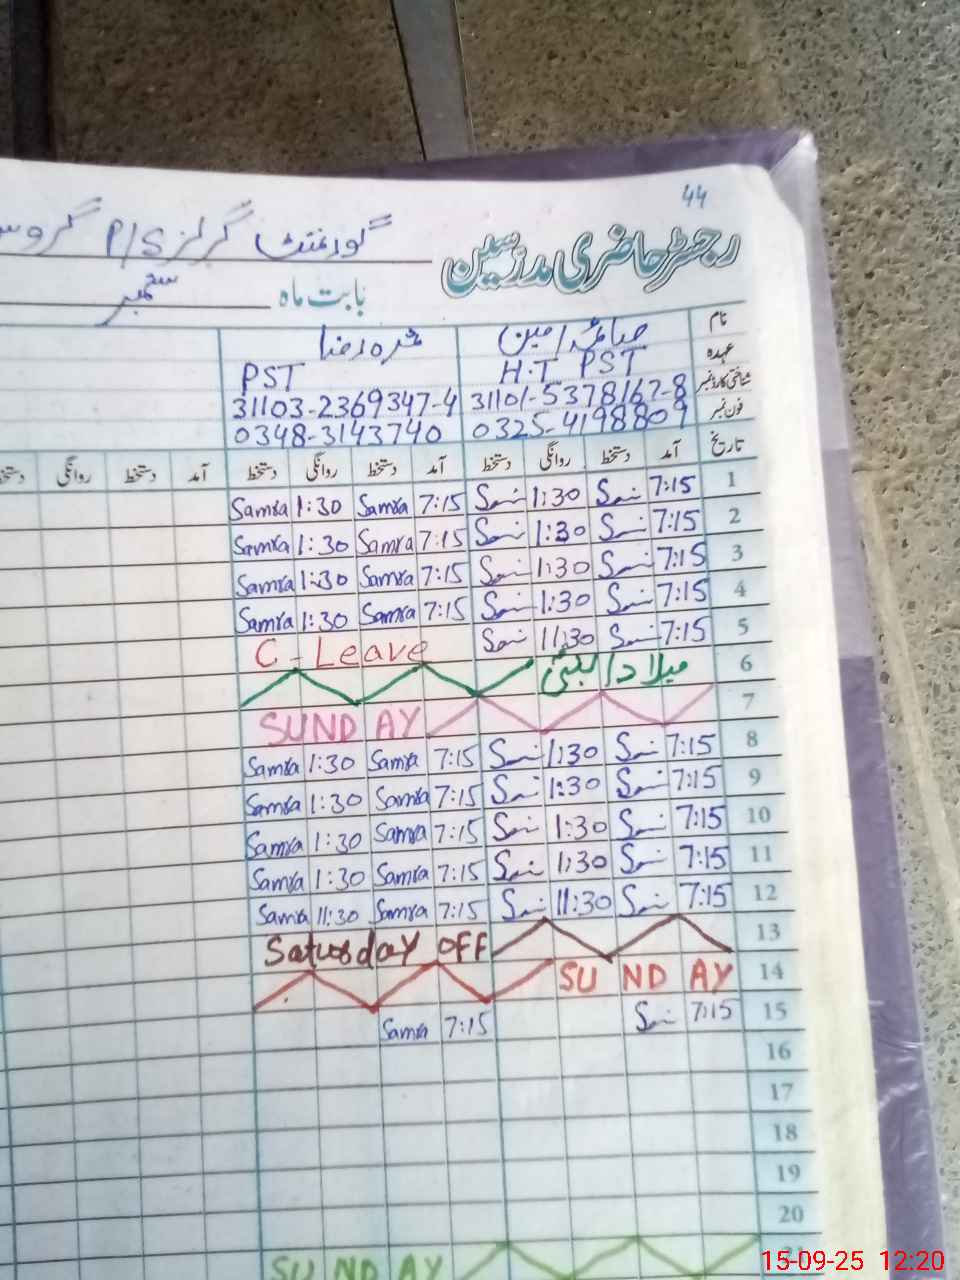 44
رجسٹر حاضری مدرسین گورنمنٹ گرلز P/S
بابت ماہ ستمبر
نام صائمہ امین ثمرہ رضا
عہدہ H.T PST PST
شناختی کارڈ نمبر 31101-5378167-8 31103-2369347-4
فون نمبر 0325-4198809 0348-3143740
تاریخ آمد دستخط روانگی دستخط آمد دستخط روانگی دستخط آمد دستخط روانگی دستخط
1 7:15 1:30 7:15 Samra 1:30 Samra
2 7:15 1:30 7:15 Samra 1:30 Samra
3 7:15 1:30 7:15 Samra 1:30 Samra
4 7:15 1:30 7:15 Samra 1:30 Samra
5 7:15 11:30 C-Leave
6 میلاد النبیؐ
7 SUNDAY
8 7:15 1:30 7:15 Samra 1:30 Samra
9 7:15 1:30 7:15 Samra 1:30 Samra
10 7:15 1:30 7:15 Samra 1:30 Samra
11 7:15 1:30 7:15 Samra 1:30 Samra
12 7:15 11:30 7:15 Samra 11:30 Samra
13 Saturday OFF
14 SUNDAY
15 7:15 7:15 Samra
16
17
18
19
20
21 SUNDAY
15-09-25 12:20